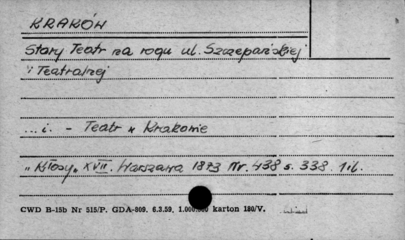 KRAKÓW
Stary Teatr na rogu ul. Szczepańskiej
i Teatralnej
...i. - Teatr w Krakowie
"Kłosy" XVII. Warszawa 1873 Nr. 438 s. 338. 1il.
CWD B-15b Nr 515/P. GDA-809. 6.3.59. 1.000.000 karton 180/V.